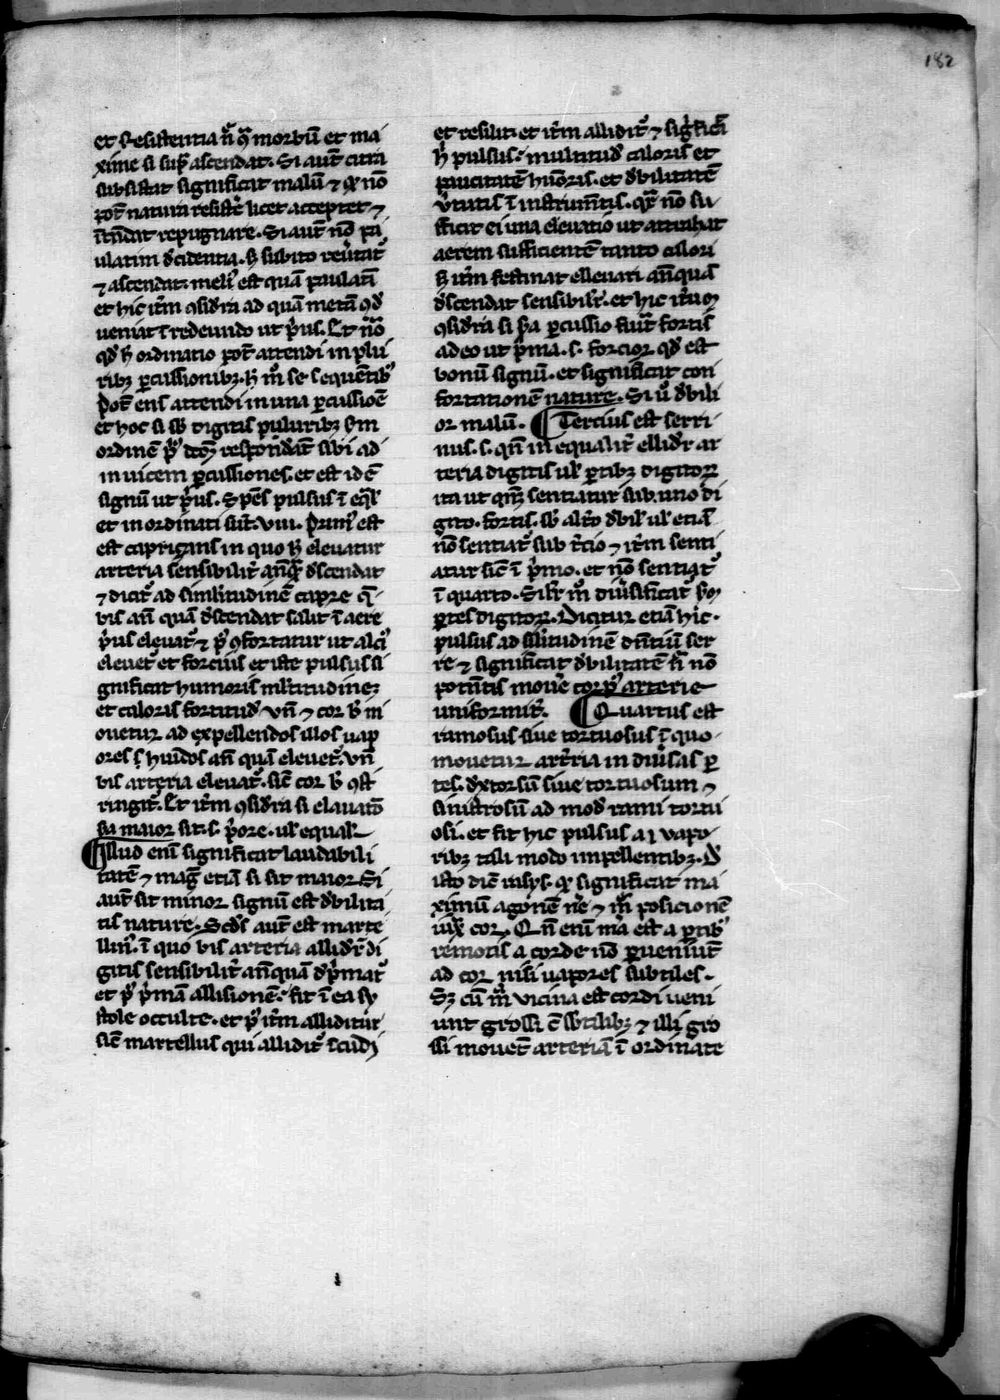 182
et resistentia nr̄ ɋ morbū et ma
xime si sup̄ ascendat. Si aut̄ citra
subsistat significat malū ⁊ qꝫ nō
pot̄ natura resist̄e licet acceptet ⁊
īt̄ndat repugnare. Si aut̄ nō pa
ulatim dēcidentia. sꝫ subito reūtat᷑
⁊ ascendat meli᷒ est quā paulati
et hic it̄m ꝯsidera ad quā metā qd̄
veniat ī redeundo ut p̄us. Et nō
qd̄ hꝰ ordinatio pot̄ attendi in plu
ribꝫ ꝑcussionibꝫ. hꝰ mͦ se sequētibꝰ
Pot̄ enī attendi in una ꝑcussiōe
et hoc si sb̄ digitis pluribꝫ sm̄
ordinē p̄ dc̄oꝝ respondāt sibi ad
invicem ꝑcussiones. et est idē
signū ut p̄us. Spēs pulsus ī eq̄l
et inordinati sūt. viii. Primꝰ est
est caprizans in quo bꝰ elevatur
arteria sensibilit̄ anq̄ꝫ dēscendat
⁊ dicit᷑ ad similitudinē capre q̄
bis an̄ quā dēscendat salit ī aere
p̄us elevat᷑ ⁊ pꝰ ꝯfortatur ut alciꝰ
elevet᷑ et forcius et iste pulsus si
gnificat humoris ml̄titudineꝫ
et caloris fortitud̄ vn̄ ⁊ cor bꝰ m
ovetur ad expellendos illos vap
ores ⁊ huīdos an̄ quā elevet᷑. vn̄
bis arteria elevat᷑. sic̄ cor bꝰ ꝯst
ringit᷑. Et it̄m ꝯsidera si elavatō
sa maior sit. s. p̄ore. ul̓ equal̓
¶ Illud enī significat laudabili
tatē ⁊ mag̅ etiā si sit maior Si
aut̄ sit minor signū est dēbilita
tis nature. Scd̄s aut̄ est marte
llin᷒. ī quo bis arteria allidit᷑ di
gitis sensibilit̄ anquā dep̄mat᷑
et pꝰ p̄mā allisionē. fit ī ea sy
stole occulte. et pꝰ it̄m alliditur
sic̄ martellus qui allidit᷑ īcudi
et resilit. et it̄m allidit᷑ ⁊ sig̅ficat
hꝰ pulsus. multitud̄ caloris et
paucitatē hūoris. et dēbilitatē
v̄tutis ī instrum̄tis. qꝛ nō su
fficit ei una elevatio ut attrahat
aerem sufficientē tanto calori
sꝫ it̄m festinat ellevari anquā
dēscendat sensibilit̄. et hic it̄uꝫ
ꝯsidera si sc̄a ꝑcussio fuit fortis
adeo ut p̄ma. s. forcior qd̄ est
bonū signū. et significat con
fortationē nature. Si uͦ dēbili
or malū. ¶ Tercius est serri
nus. s. qn̄ inequalit̄ ellidit᷑ ar
teria digitis ul̓ ꝑtibꝫ digitoꝝ
ita ut qn̄qꝫ sentiatur sub uno di
gito. fortis. sb̄ alt̄o dēbil̓ ul̓ etiā
nō sentiat᷑ sub t̄cio ⁊ it̄m senti
atur sic̄ ī p̄mo. et nō sentiat᷑
ī quarto. Silr̄ mͦ diūsificat᷑ sm̄
ꝑtes digitoꝝ. Dicitur etiā hic
pulsus ad sil̓itudinē dn̄tiū ser
re ⁊ significat dēbilitatē si nō
potn̄tis movē̄ corpꝰ arterie
uniformit̄. ¶ Quartus est
ramosus sive tortuosus ī quo
movetur art̄ria in diūsas ꝑ
tes. dextorsū sive tortuosum ⁊
sinistrosū ad mod̄ rami tortu
osi. et fit hic pulsus a vapo
ribꝫ tali modo impellentibꝫ. D̄
isto diē ralys. qꝫ significat ma
ximū agonē nē ⁊ mē posicionē
iuxͣ cor. Qn̄ enī mā est a ꝑtibꝰ
remotis a corde nō ꝑveniūt
ad cor nisi vapores subtiles.
Sꝫ cū mā vicina est cordi veni
unt grossi ē sb̄tilibꝫ ⁊ illi gro
ssi movēt arteriā īordinate